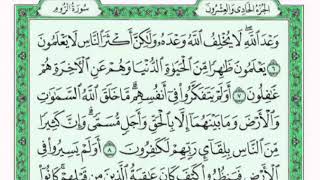 الجزء الحادي والعشرون
سورة الروم
وَعْدَ اللَّهِ لَا يُخْلِفُ اللَّهُ وَعْدَهُ وَلَٰكِنَّ أَكْثَرَ النَّاسِ لَا يَعْلَمُونَ
٦ يَعْلَمُونَ ظَاهِرًا مِّنَ الْحَيَاةِ الدُّنْيَا وَهُمْ عَنِ الْآخِرَةِ هُمْ
غَافِلُونَ ٧ أَوَلَمْ يَتَفَكَّرُوا فِي أَنفُسِهِم مَّا خَلَقَ اللَّهُ السَّمَاوَاتِ
وَالْأَرْضَ وَمَا بَيْنَهُمَا إِلَّا بِالْحَقِّ وَأَجَلٍ مُّسَمًّى وَإِنَّ كَثِيرًا
مِّنَ النَّاسِ بِلِقَاءِ رَبِّهِمْ لَكَافِرُونَ ٨ أَوَلَمْ يَسِيرُوا فِي
الْأَرْضِ فَيَنظُرُوا كَيْفَ كَانَ عَاقِبَةُ الَّذِينَ مِن قَبْلِهِمْ كَانُوا